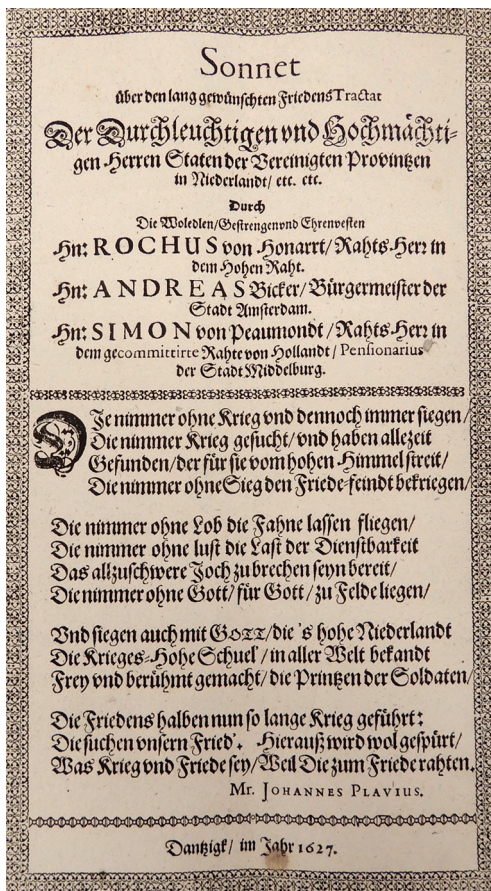 Sonnet
über den lang gewünschten FriedensTractat
Der Durchleuchtigen vnd Hochmächti-
gen Herren Staten der Vereinigten Provintzen
in Niederlandt/ etc. etc.
Durch
Die Woledlen/Gestrengen vnd Ehrenvesten
Hn: ROCHUS von Honarrt/ Rahts-Herr in
dem Hohen Raht.
Hn: ANDREAS Bicker/ Bürgermeister der
Stadt Amsterdam.
Hn: SIMON von Peaumondt/ Rahts-Herr in
dem gecommittirte Rahte von Hollandt/ Pensionarius
der Stadt Middelburg.
DJe nimmer ohne Krieg vnd dennoch immer siegen/
Die nimmer Krieg gesucht/ vnd haben allezeit
Gefunden/ der für sie vom hohen Himmel streit/
Die nimmer ohne Sieg den Friede-feindt bekriegen/
Die nimmer ohne Lob die Fahne lassen fliegen/
Die nimmer ohne lust die Last der Dienstbarkeit
Das allzuschwere Joch zu brechen seyn bereit/
Die nimmer ohne Gott/ für Gott/ zu Felde liegen/
Vnd siegen auch mit GOTT/ die 's hohe Niederlandt
Die Krieges-Hohe Schuel'/ in aller Welt bekandt
Frey vnd berühmt gemacht/ die Printzen der Soldaten/
Die Friedens halben nun so lange Krieg geführt:
Die suchen vnsern Fried'. Hierauß wird wol gespürt/
Was Krieg vnd Friede sey/ Weil Die zum Friede rahten.
Mr. JOHANNES PLAVIUS.
Dantzigk/ im Jahr 1627.